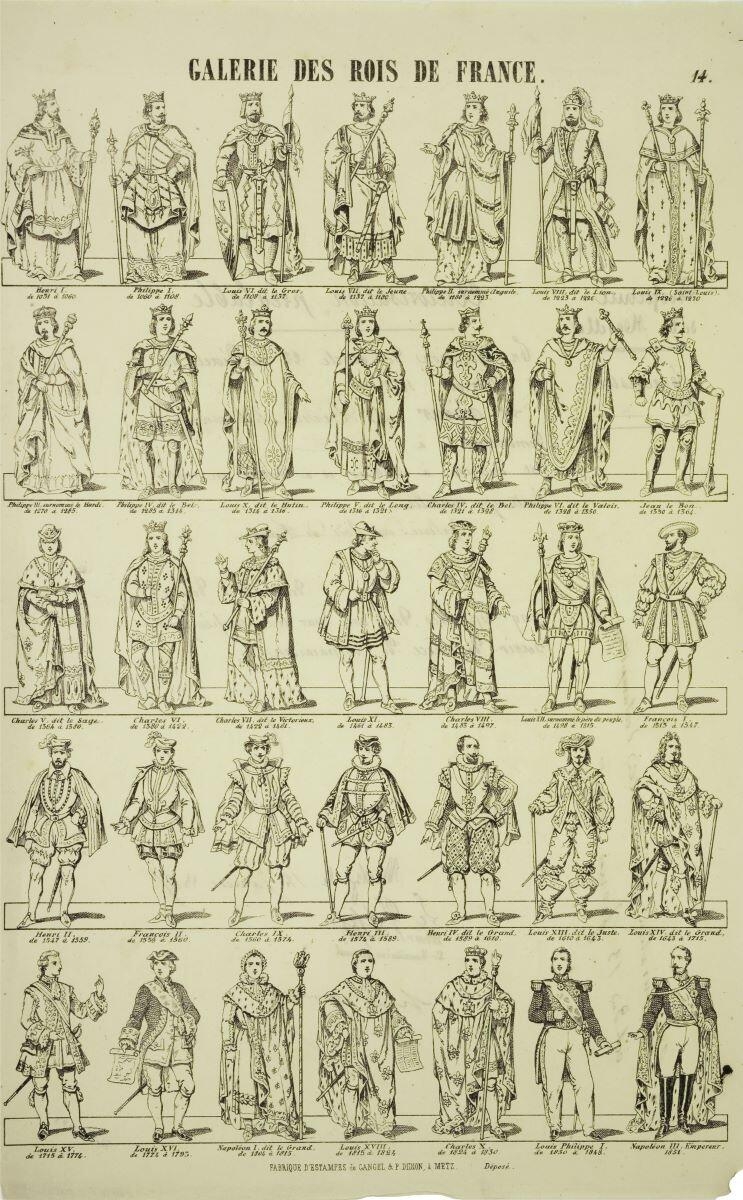 GALERIE DES ROIS DE FRANCE.
14.
Henri I.
de 1031 à 1060.
Philippe I.
de 1060 à 1108.
Louis VI. dit le Gros.
de 1108 à 1137.
Louis VII. dit le Jeune.
de 1137 à 1180
Philippe II. surnommé Auguste.
de 1180 à 1223.
Louis VIII. dit le Lion.
de 1223 à 1226.
Louis IX. (Saint Louis).
de 1226 à 1270
Philippe III. surnommé le Hardi.
de 1270 à 1285.
Philippe IV. dit le Bel.
de 1285 à 1314.
Louis X. dit le Hutin.
de 1314 à 1316.
Philippe V. dit le Long.
de 1316 à 1321.
Charles IV. dit le Bel.
de 1321 à 1328.
Philippe VI. dit le Valois.
de 1328 à 1350.
Jean le Bon.
de 1350 à 1364.
Charles V. dit le Sage.
de 1364 à 1380.
Charles VI.
de 1380 à 1422.
Charles VII. dit le Victorieux.
de 1422 à 1461.
Louis XI.
de 1461 à 1483.
Charles VIII.
de 1483 à 1497.
Louis XII. surnommé le père du peuple.
de 1498 à 1515.
François I.
de 1515 à 1547.
Henri II.
de 1547 à 1559.
François II.
de 1559 à 1560.
Charles IX.
de 1560 à 1574.
Henri III.
de 1574 à 1589.
Henri IV. dit le Grand.
de 1589 à 1610.
Louis XIII. dit le Juste.
de 1610 à 1643.
Louis XIV. dit le Grand.
de 1643 à 1715.
Louis XV.
de 1715 à 1774.
Louis XVI.
de 1774 à 1793.
Napoléon I. dit le Grand.
de 1804 à 1815.
Louis XVIII.
de 1815 à 1824
Charles X.
de 1824 à 1830.
Louis Philippe I.
de 1830 à 1848.
Napoléon III. Empereur.
1851.
FABRIQUE D'ESTAMPES de GANGEL & P. DIDION, à METZ.
Déposé.